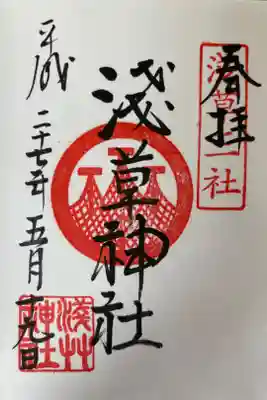 奉拝
浅草神社
平成二十七年五月十九日
淺草神社